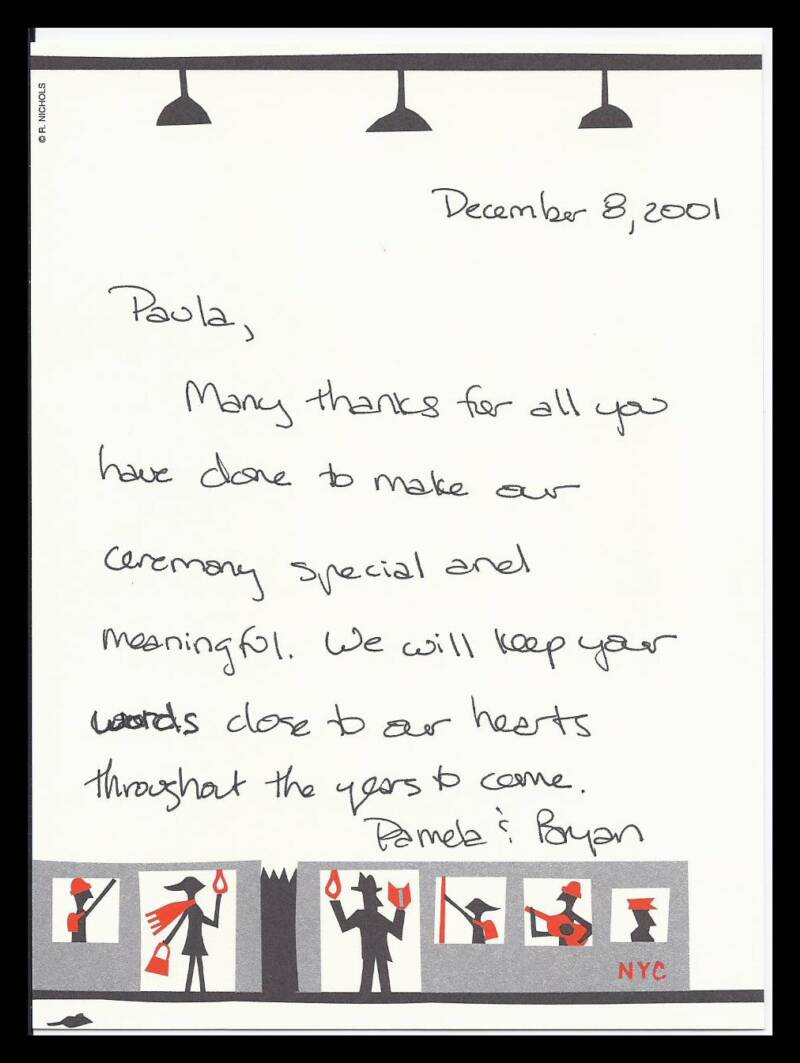 © R. NICHOLS
December 8, 2001
Paula,
Many thanks for all you
have done to make our
ceremony special and
meaningful. We will keep your
words close to our hearts
throughout the years to come.
Pamela & Bryan
NYC